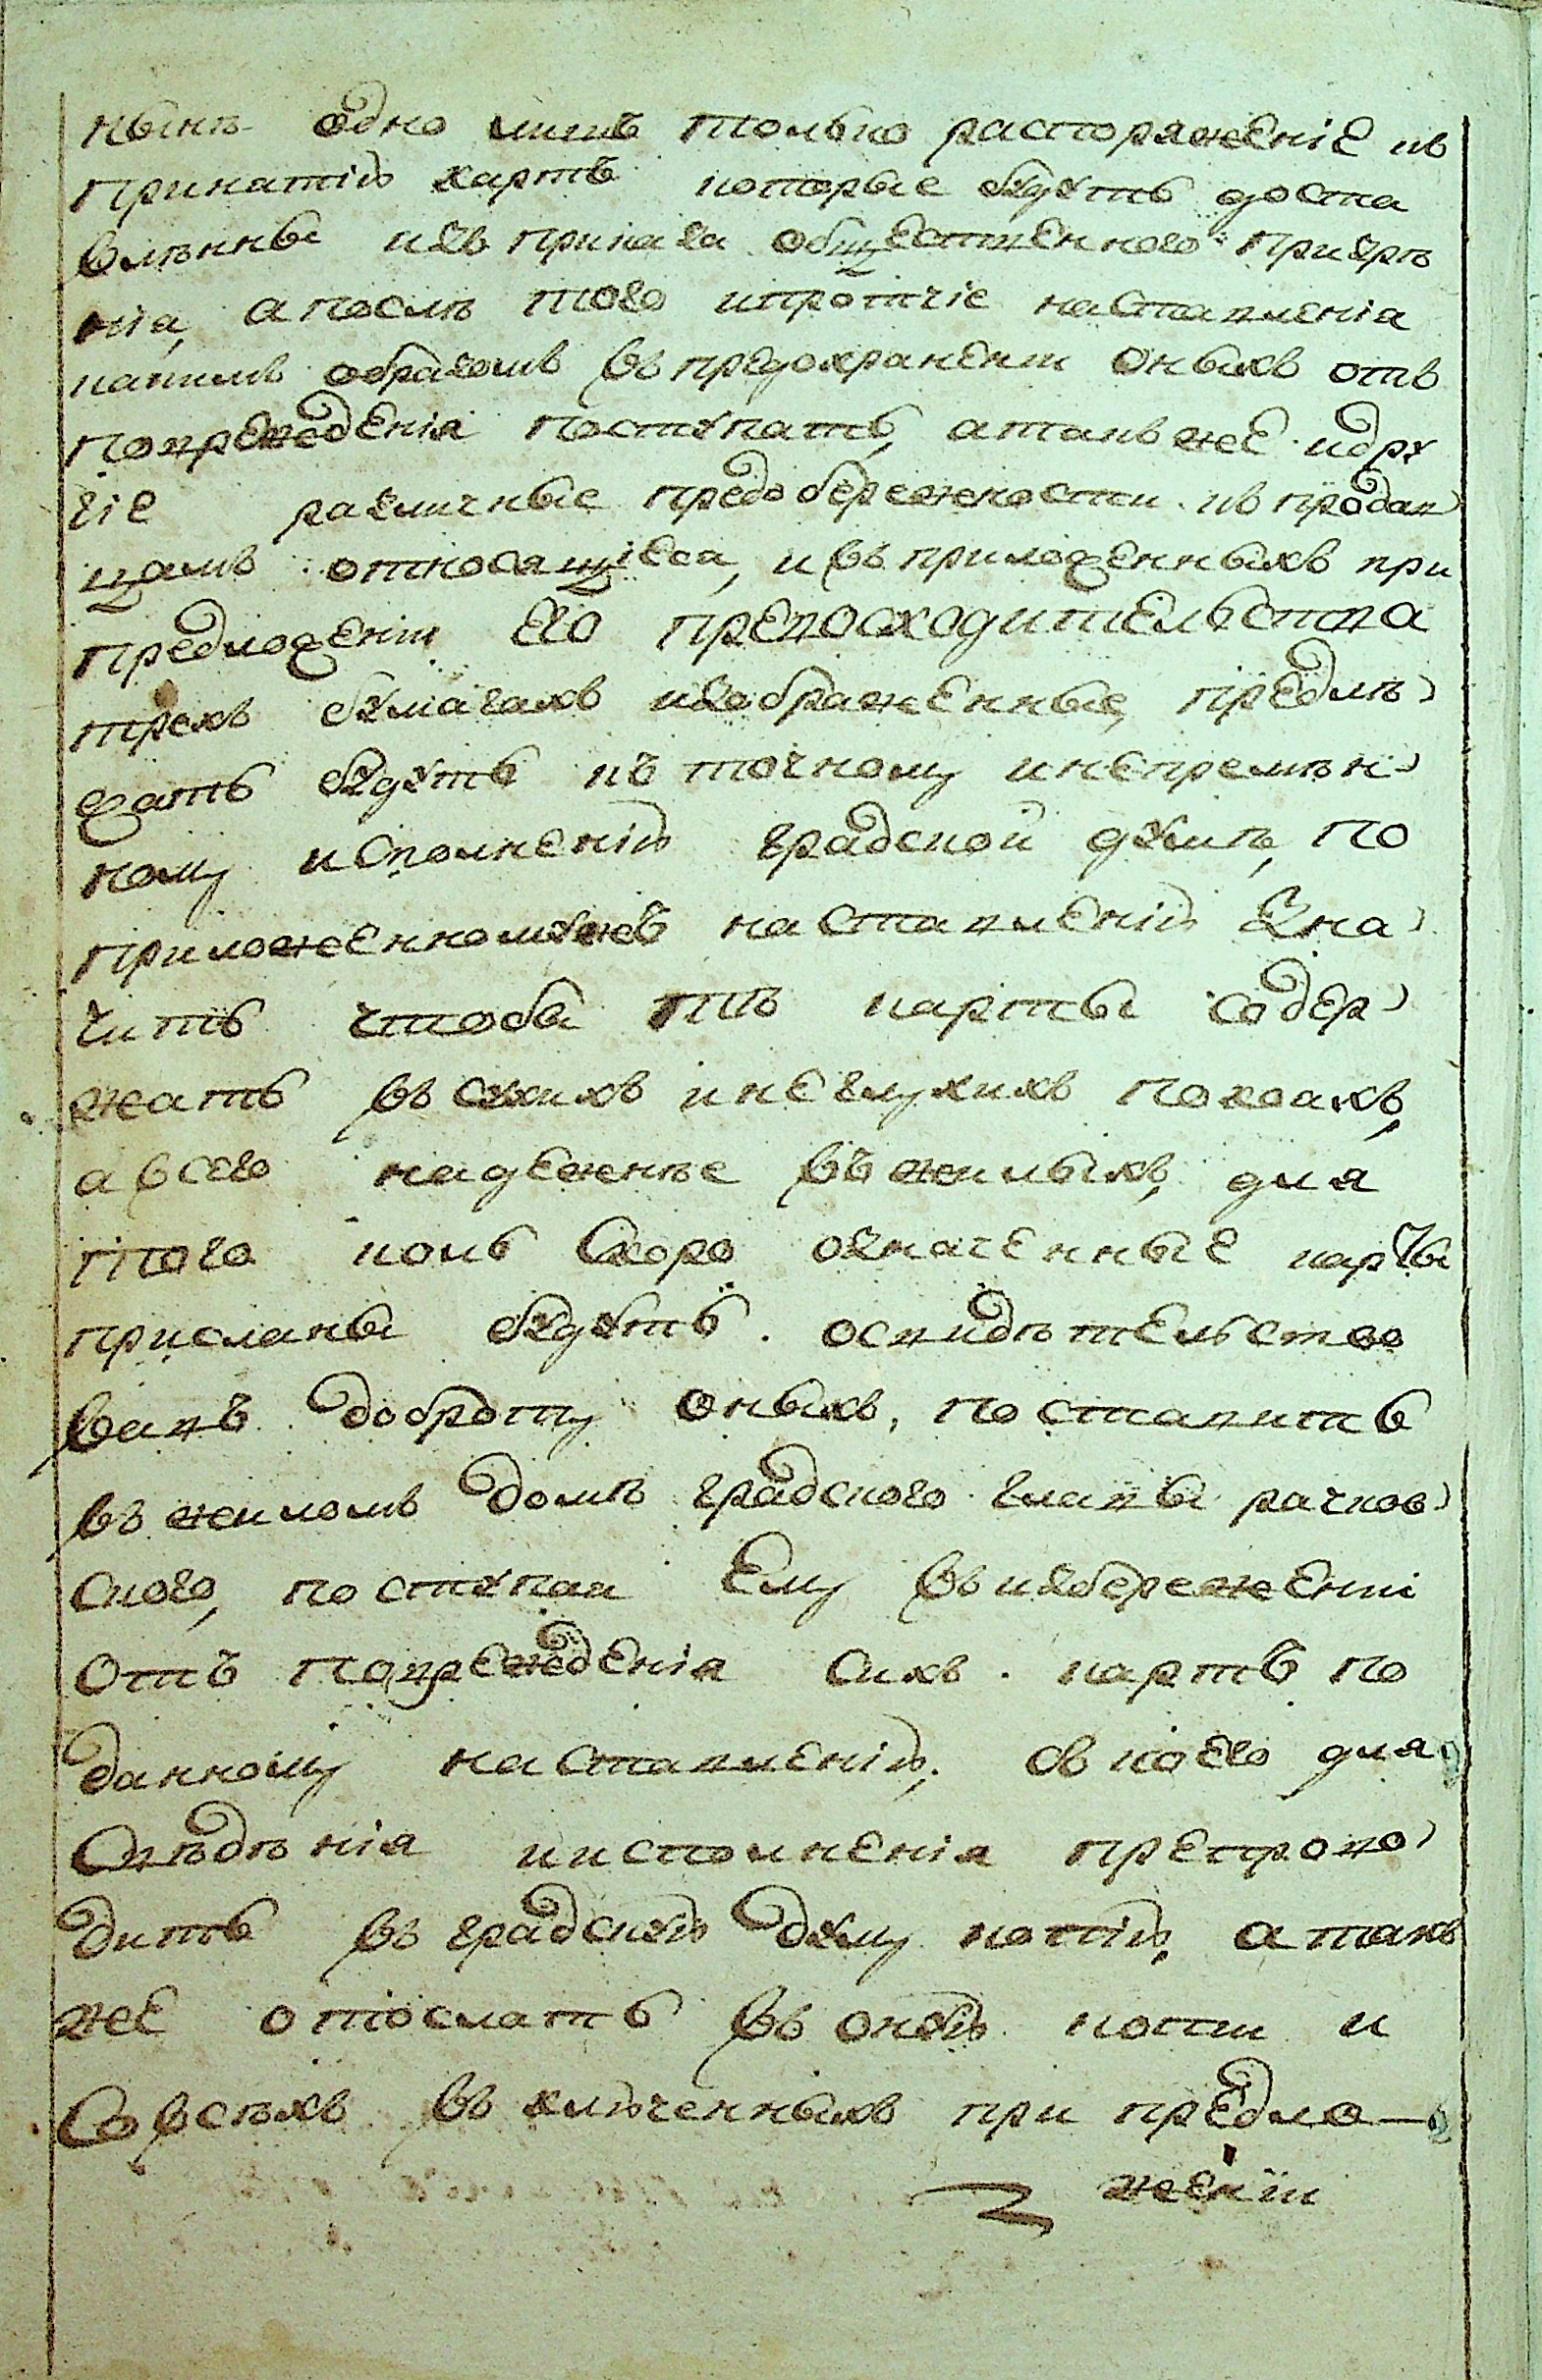 нынѣ одно лишъ только распоряженіе къ
принятію картъ которые будутъ доста
влѣнны изъ приказа общественного призрѣ
нія, а послѣ того ипротчіе наставленія
какимъ образомъ въ предохраненіи оныхъ отъ
поврежденія поступать, а такъ же идру
гіе различные предобережности къ продав
цамъ относящіеся, и въ приложенныхъ при
предложеніи Его превосходительства
трехъ бумагахъ изображенные, предлѣ
жать будутъ къ точному инепремѣн
ному исполненію градской думѣ, по
приложенномужъ наставленію зна
чить чтобы тѣ карты содер
жать въ сухихъ инеглухихъ покояхъ,
а всего надежнѣе въ жилыхъ, для
того коль скоро означенные карты
присланы будутъ. освидѣтельство
вавъ доброту оныхъ, поставить
въ жиломъ домѣ градского главы рачков
ского, поступая Ему въ избереженіи
Отъ поврежденія сихъ картъ по
данному наставленію, съ коего для
Свѣдѣнія иисполненія препрово
дить въ градскую думу копію, а такъ
же отослать въ оную копіи и
Со всѣхъ въ ключенныхъ при предло
женіи